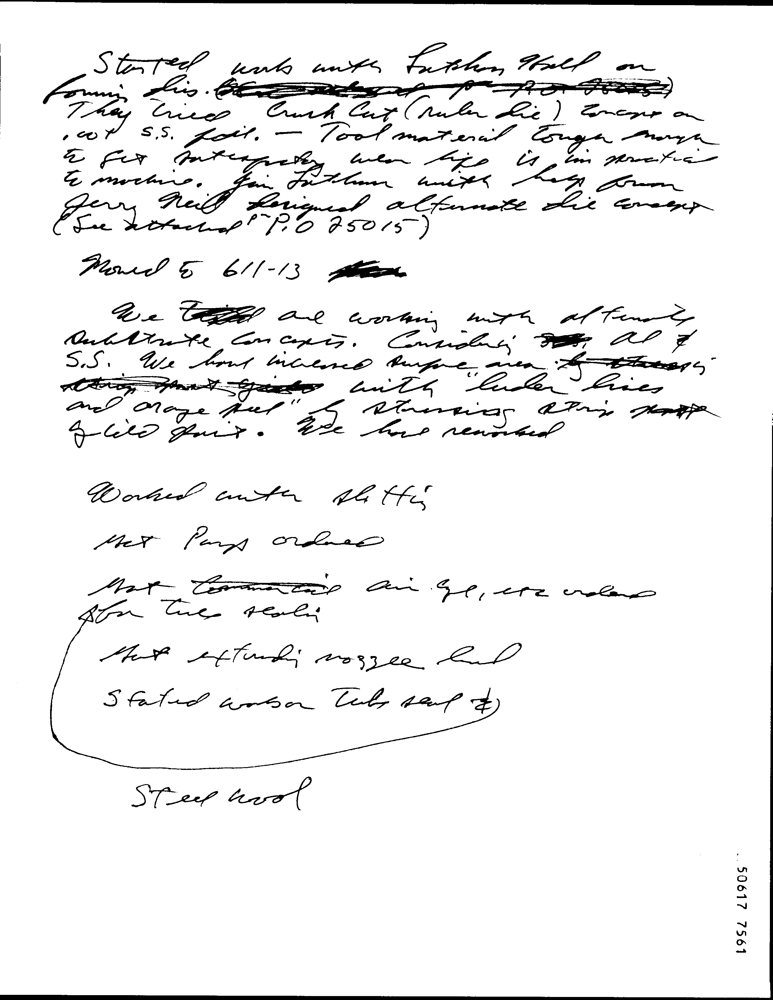 Started work with Lathem Hall on
forming dis.
They tried Crush Cut (ruler die) concept on
.001 S.S. foil. — Tool material tough enough
to get satisfactory wear life is impractical
to machine. Jim Lathem with help from
Jerry Neil designed alternate die concept
(See attached "P.O 25015)
Moved to 611-13
We are working with alternate
Substrate Concepts. Considering Al &
S.S. We have increased surface area
with "luder lines
and orange peel" by stressing strip
yield point. We have reworked
Worked with slitting
Met Pumps ordered
Mat air cyl, etc ordered
for tube sealing
Mat extruding nozzle
Started work on Tube seal &)
Steel wool
50617 7561